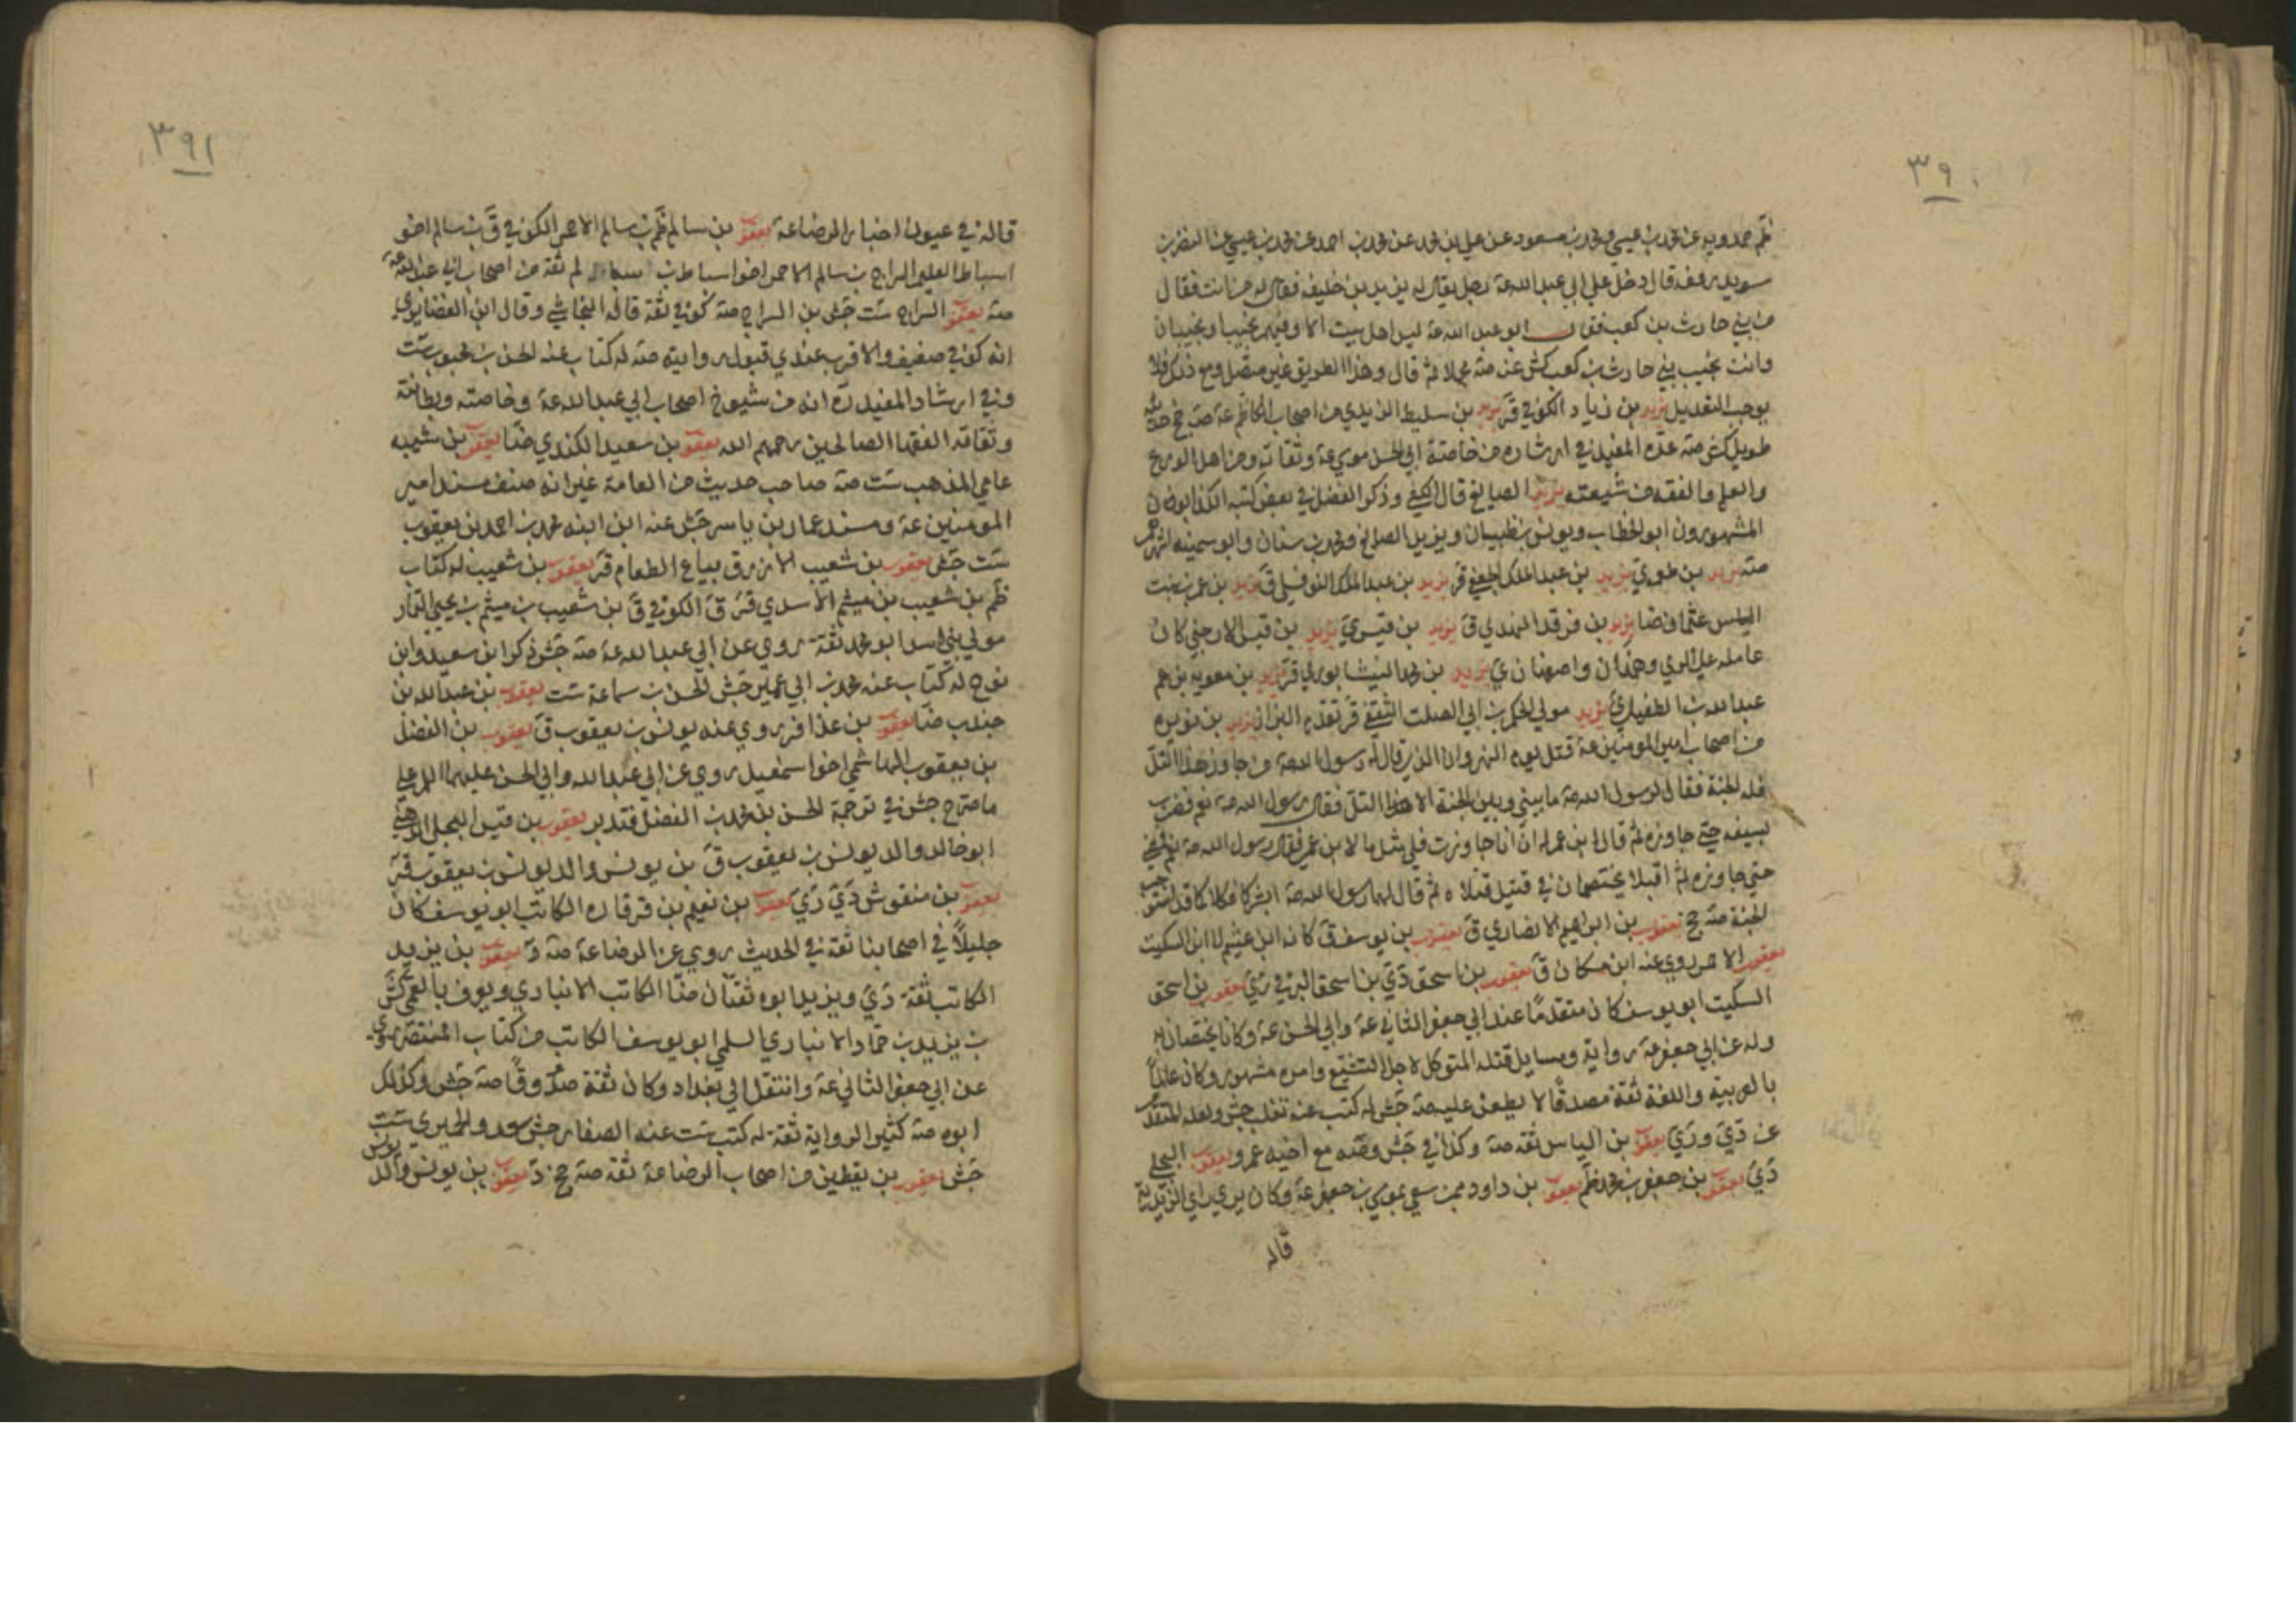 ٣٩٠
ظم حمدويه عن محمد بن عيسى ومحمد بن مسعود عن علي بن محمد عن محمد بن احمد عن محمد بن عيسى عن النضر بن
سويد رفعه قال دخل علي ابي عبد الله عة رجل يقال له يزيد بن خليفه فقال له من انت فقال
من بني حارث بن كعب فقال ابو عبد الله عة ليس اهل بيت الا وفيهم نجيب او نجيبان
وانت نجيب بني حارث بن كعب كش عن صة مجملا ثم قال وهذا الطريق غير متصل ومع ذلك فلا
يوجب التعديل يزيد بن زياد الكوفي قر يزيد بن سليط الزيدي من اصحاب الكاظم عة صة جخ حديثه
طويل كش صة عده المفيد في ارشاده من خاصة ابي الحسن موسى عة وثقاته ومن اهل الورع
والعلم والفقه من شيعته يزيد الصايغ قال الكشي وذكر الفضل في بعض كتبه الكذابون
المشهورون ابو الخطاب ويونس بن ظبيان ويزيد الصايغ ومحمد بن سنان وابو سمينه اشهرهم
صة يزيد بن عبد الملك الجعفي قر يزيد بن عبد الملك النوفلي ق يزيد بن عمر بن بنت
عثمان ضا يزيد بن فرقد النهدي ق يزيد بن قيس ي يزيد بن قيس الارحبي كان
عامله على الري وهمدان واصفهان ي يزيد بن محمد النيشابوري قر يزيد بن معويه بن
عبد الله بن الطفيل ي يزيد مولى الحكم بن ابي الصلت الثقفي قر تقدم البزاز يزيد بن نويره
من اصحاب امير المومنين عة قتل يوم النهروان الذي قال له رسول الله صة من جاوز هذا التل
فله الجنة فقال لرسول الله صة ما بيني وبين الجنة الا هذا التل فقال رسول الله صة نعم فضرب
بسيفه حتى جاوزه ثم قال ابن عم له ان انا جاوزت فلي مثل ما لابن عمي فقال رسول الله صة نعم فمضى
حتى جاوزه ثم اقبلا يختصمان في قتيل قتلاه ثم قال لهما رسول الله صة ابشرا فكلاكما قد استوجب
الجنة صة جخ يعقوب بن ابراهيم الانصاري ق يعقوب بن يوسف ق
يعقوب الاحمر روى عنه ابن مسكان ق يعقوب بن اسحق دي بن اسحق البرقي ري يعقوب بن اسحق
السكيت ابو يوسف كان متقدما عند ابي جعفر الثاني عة وابي الحسن عة وكانا يختصانه
وله عن ابي جعفر عة رواية ومسايل قتله المتوكل لاجل التشيع وامره مشهور وكان عالما
بالعربية واللغة ثقة مصدقا لا يطعن عليه صة جش له كتب عنه ثعلب جش ولعله المتقدم
عن دي وري يعقوب بن الياس ثقه صة وكذا في جش وصة مع اخيه عمرو يعقوب البجلي
دي يعقوب بن جعفر بن محمد ظم يعقوب بن داود ممن سعى بموسى بن جعفر عة وكان يرى راي الزيدية
قاله
٣٩١
قاله في عيون اخبار الرضا عة يعقوب بن سالم ظم بن سالم الاحمر الكوفي ق بن سالم اخو
اسباط العليم السراج بن سالم الاحمر اخو اسباط بن سالم ثقة من اصحاب ابي عبد الله عة
صة يعقوب السراج ست جش بن السراج صة كوفي ثقة قاله النجاشي وقال ابن الغضايري
انه كوفي ضعيف والاقرب عندي قبول روايته صة له كتاب عنه الحسن بن محبوب ست
وفي ارشاد المفيد ره انه من شيوخ اصحاب ابي عبد الله عة وخاصته وبطانته
وثقاته الفقها الصالحين رحمهم الله يعقوب بن سعيد الكندي ضا يعقوب بن شيبه
عامي المذهب ست صة صاحب حديث من العامة غير انه صنف مسند امير
المومنين عة ومسند عمار بن ياسر جش عنه ابن ابنه محمد بن احمد بن يعقوب
ست جش يعقوب بن شعيب الازرق بياع الطعام قر يعقوب بن شعيب له كتاب
ظم بن شعيب بن ميثم الاسدي قر ق الكوفي ق بن شعيب بن ميثم بن يحيى التمار
مولى بني اسد ابو محمد ثقة روى عن ابي عبد الله عة صة جش ذكر ابن سعيد وابن
نوح له كتاب عنه محمد بن ابي عمير جش الحسن بن سماعة ست يعقوب بن عبد الله بن
جندب ضا يعقوب بن عذافر روى عنه يونس بن يعقوب ق يعقوب بن الفضل
بن يعقوب الهاشمي اخو اسمعيل روى عن ابي عبد الله وابي الحسن عليهما السلام على
ما صرح جش في ترجمة الحسن بن محمد بن الفضل فتدبر يعقوب بن قيس البجلي الدهني
ابو خالد والد يونس بن يعقوب ق بن يونس والد يونس بن يعقوب قر
يعقوب بن منقوش دي ري يعقوب بن نعيم بن قرقاره الكاتب ابو يوسف كان
جليلا في اصحابنا ثقة في الحديث روى عن الرضا عة صة د يعقوب بن يزيد
الكاتب ثقة دي ويزيد ابوه ثقتان ضا الكاتب الانباري ويعرف بالقمي كش
بن يزيد بن حماد الانباري السلمي ابو يوسف الكاتب من كتاب المنتصر روى
عن ابي جعفر الثاني عة وانتقل الى بغداد وكان ثقة صدوقا صة جش وكذلك
ابوه صة كثير الرواية ثقة له كتب ست عنه الصفار جش سعد والحميري ست
جش يعقوب بن يقطين من اصحاب الرضا عة ثقه صة جخ د يعقوب بن يونس والد
يونس